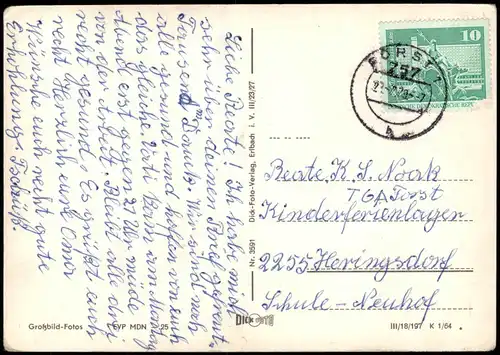 Liebe Beate! Ich habe mich
sehr über deinen Brief gefreut.
Tausend Dank. Wir sind noch
alle gesund und hoffen von euch
das gleiche. Vati kam am Montag
Abend erst gegen 21 Uhr müde
von der Arbeit. Bleibt alle drei
recht gesund. Es grüßt euch
recht herzlich eure Oma
Wünsche euch recht gute
Erholung.
Großbild-Fotos
EVP MDN
25
Nr. 3591 Dick-Foto-Verlag, Erlbach i. V. III/23/27
DICK FOTO
10
FORST
757
Beate, K. S. Noack
TGA Forst
Kinderferienlager
2255 Heringsdorf
Schule-Neuhof
III/18/197 K 1/64